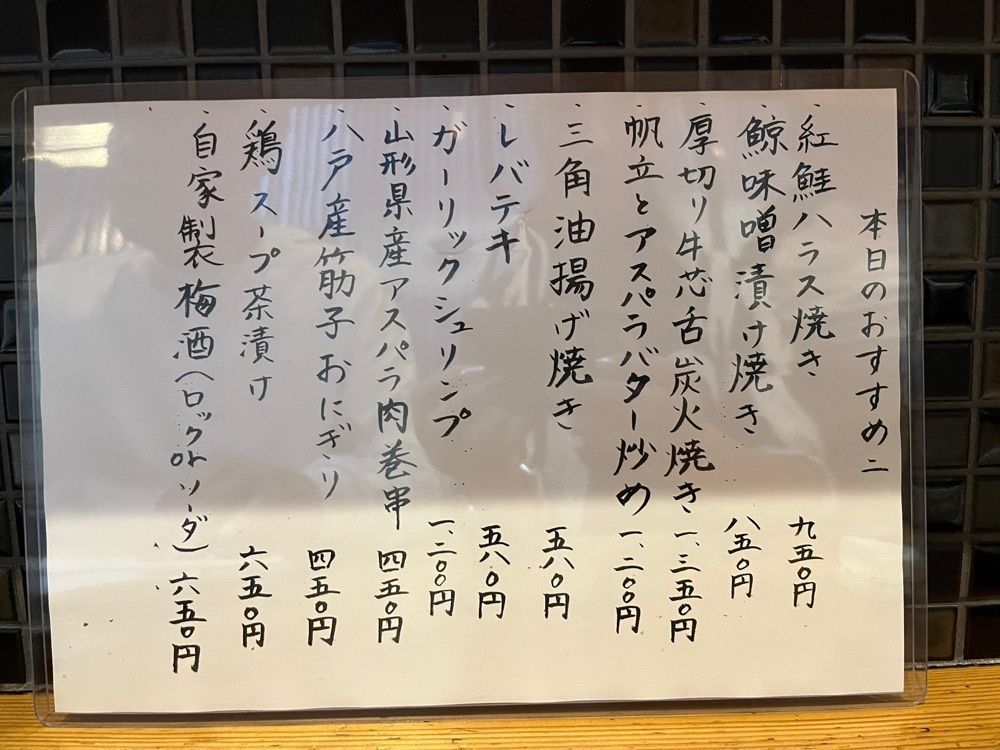 本日のおすすめ二
・紅鮭ハラス焼き 九五〇円
・鯨味噌漬け焼き 八五〇円
・厚切り牛芯舌炭火焼き 一、三五〇円
・帆立とアスパラバター炒め 一、二〇〇円
・三角油揚げ焼き 五八〇円
・レバテキ 五八〇円
・ガーリックシュリンプ 一、二〇〇円
・山形県産アスパラ肉巻串 四五〇円
・八戸産筋子おにぎり 四五〇円
・鶏スープ茶漬け 六五〇円
・自家製梅酒(ロックorソーダ) 六五〇円